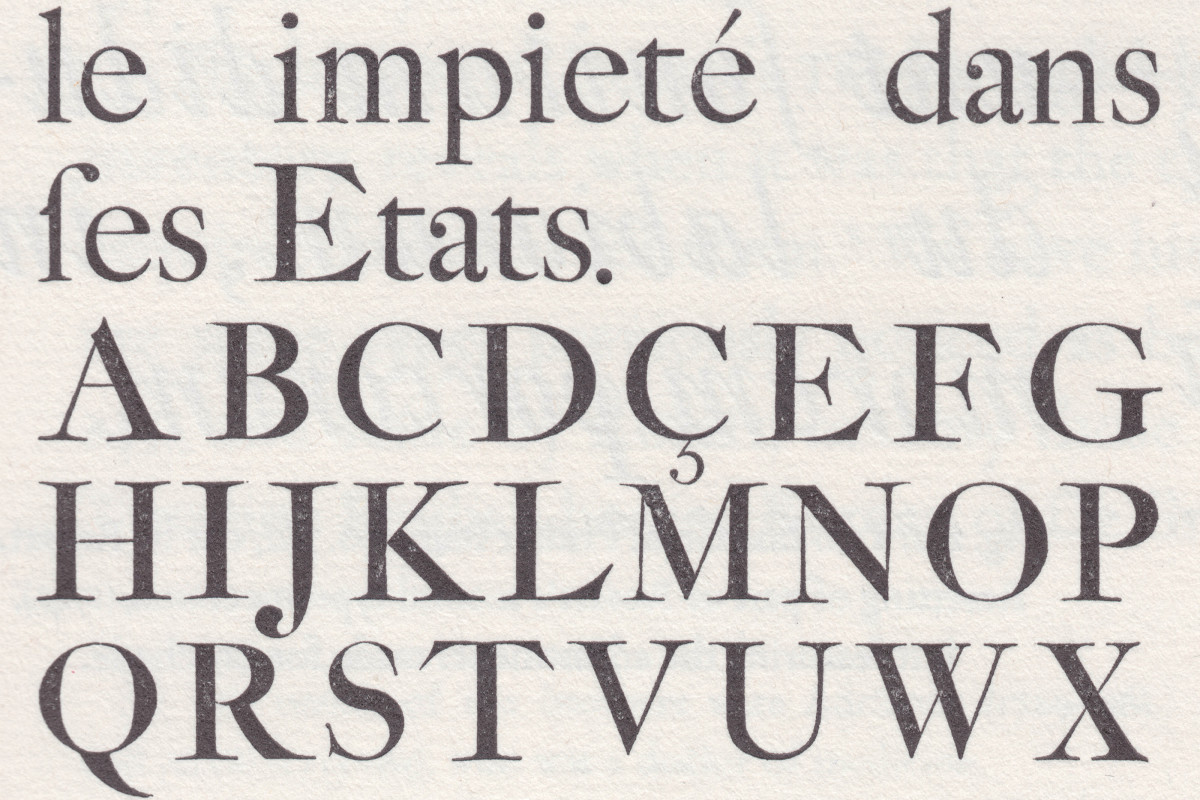 le impieté dans
ſes Etats.
A B C D Ç E F G
H I J K L M N O P
Q R S T V U W X